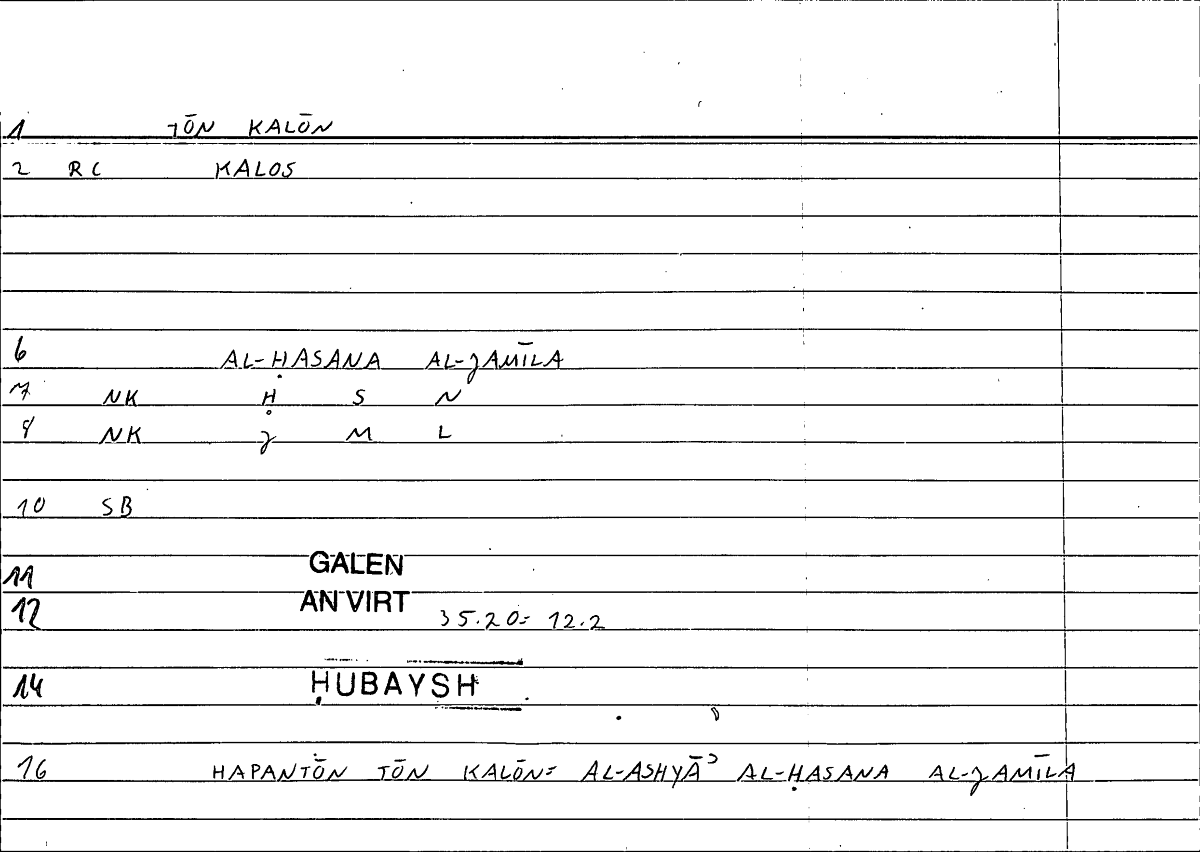 1 TŌN KALŌN
2 RC KALOS
6 AL-ḤASANA AL-JAMĪLA
7 NK Ḥ S N
8 NK J M L
10 SB
11 GALEN
12 AN VIRT 35.20= 12.2
14 ḤUBAYSH
16 HAPANTŌN TŌN KALŌN= AL-ASHYĀʾ AL-ḤASANA AL-JAMĪLA